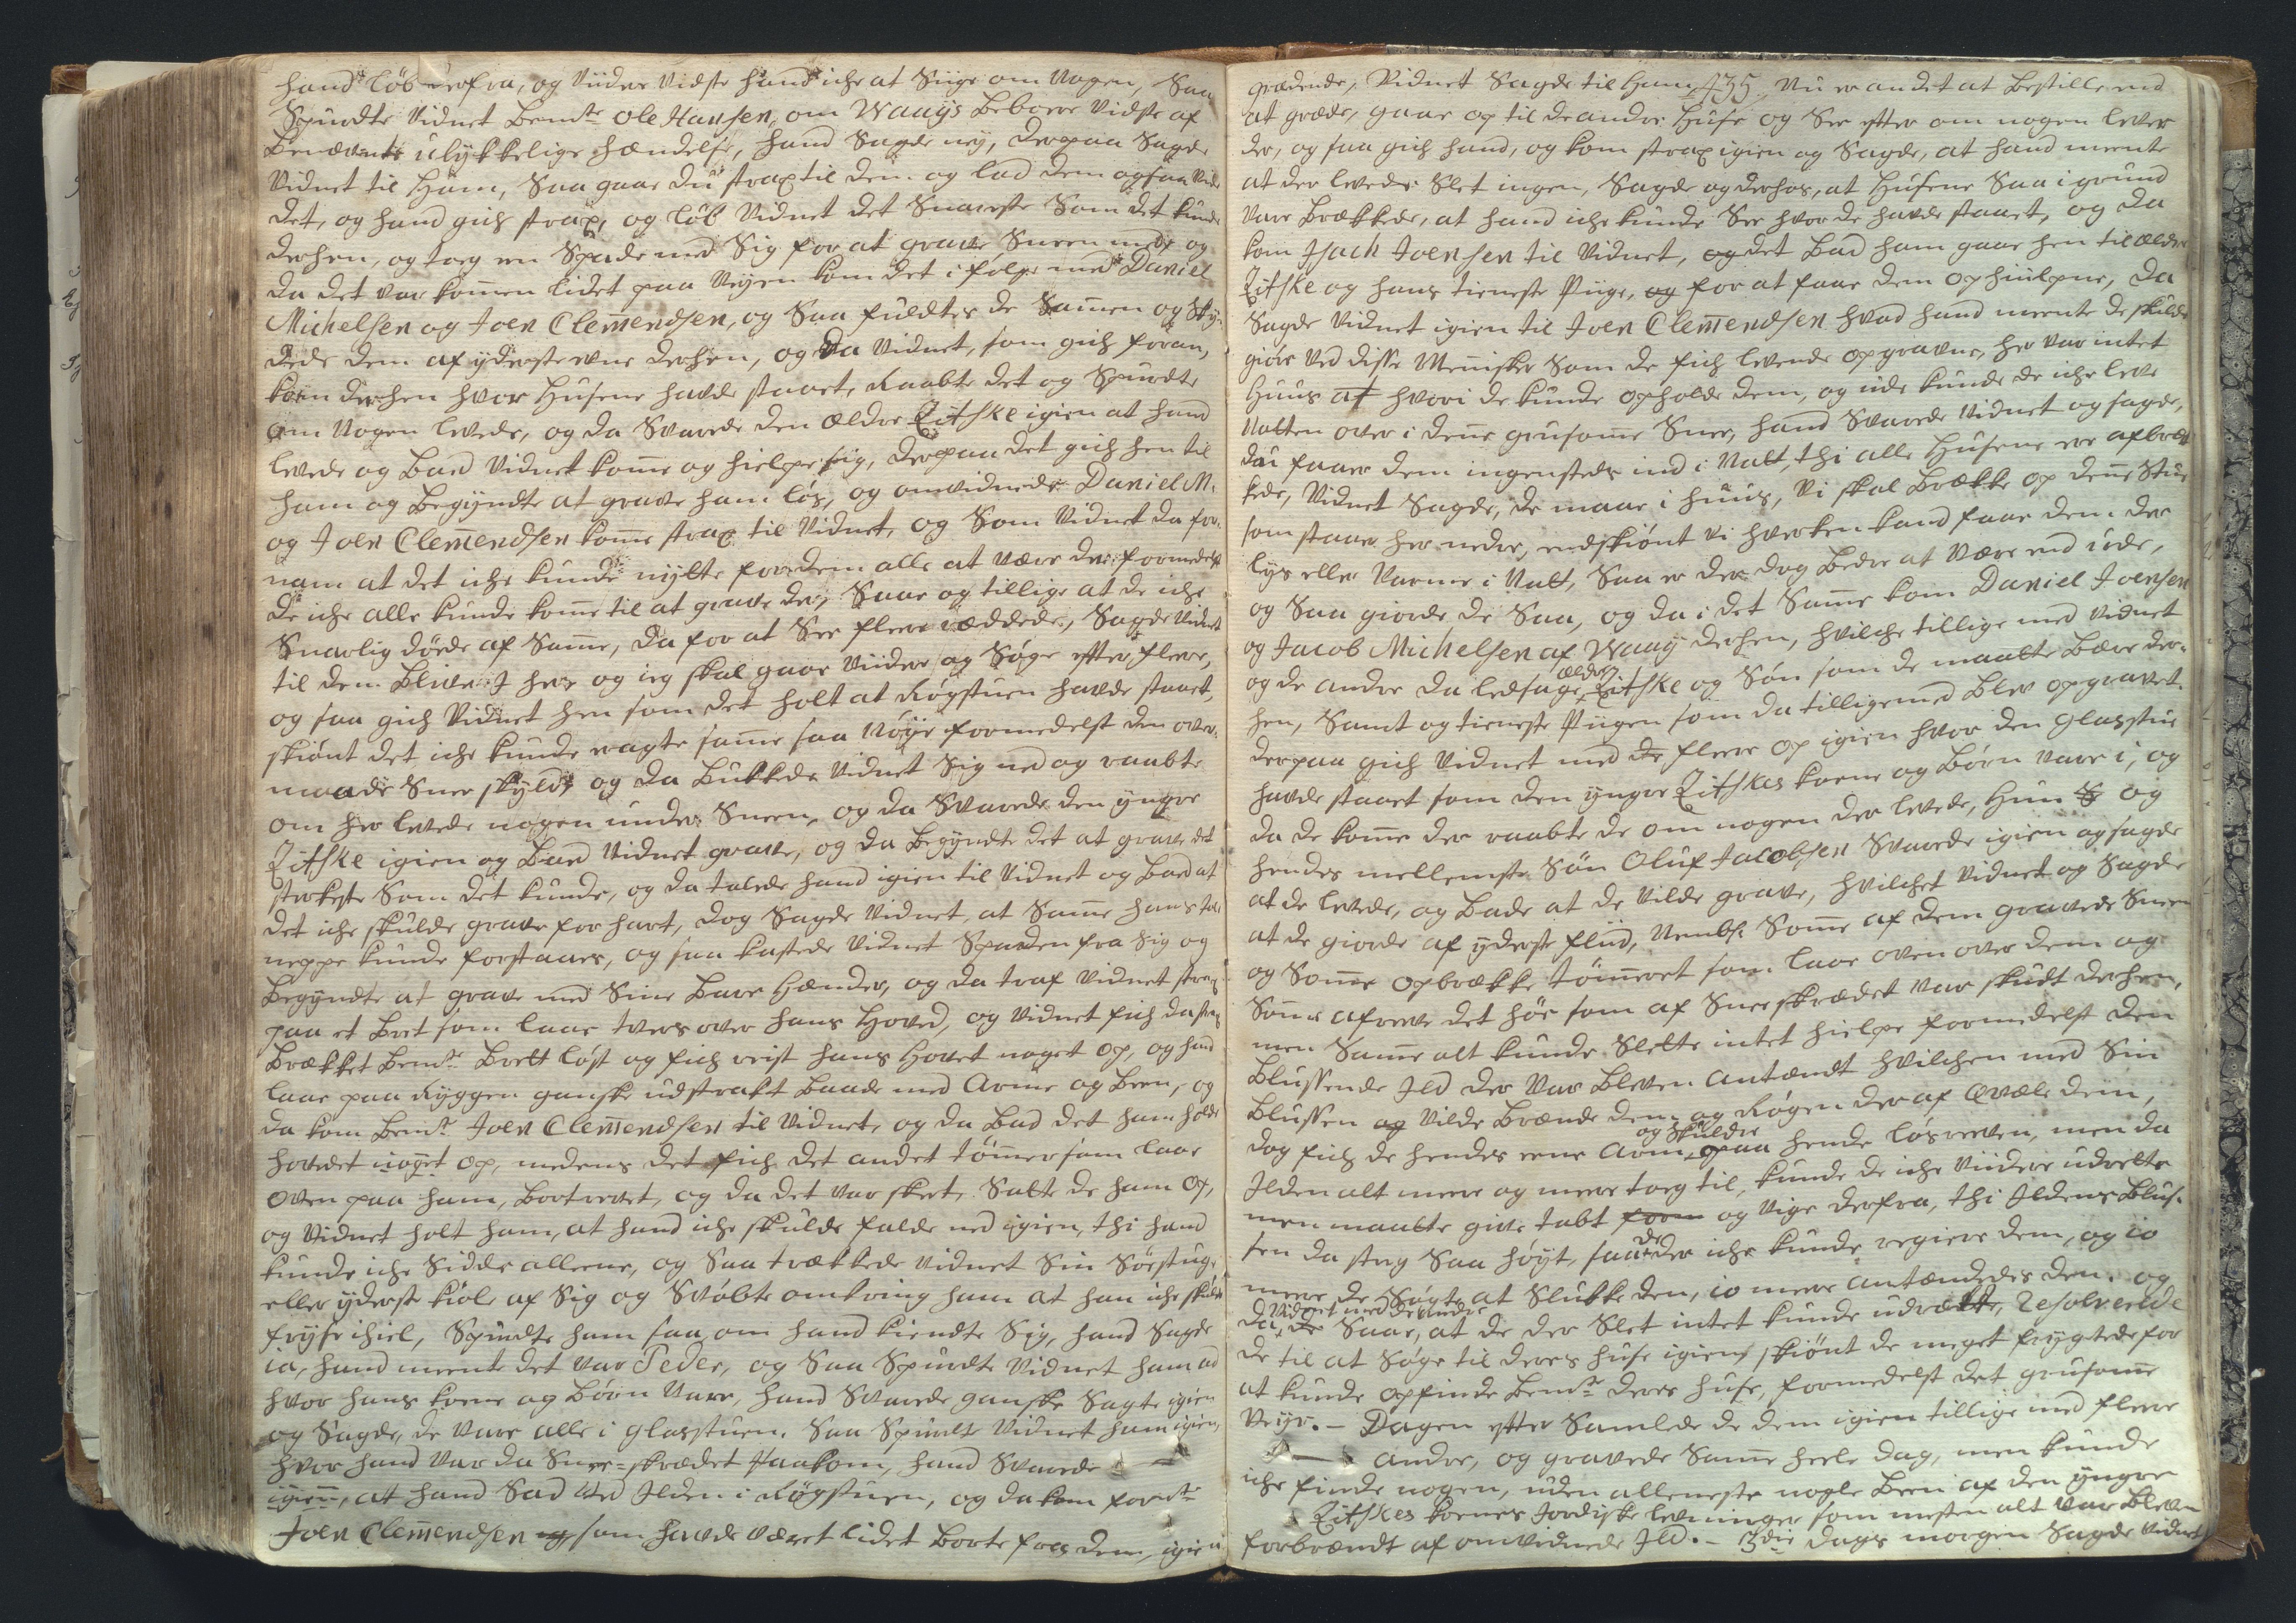 hand löb derfra, og viidere vidste hand iche at Siige om Nogen, Saa
Spurdte Vidnet Bemte Ole Hansen, om Waags Beboere vidste af
Benævnte ulykkelige hændelse, hand Sagde ney, derpaa Sagde
Vidnet til Ham, Saa gaae du strax til dem og lad dem ogsaa vide
det, og hand gich strax, og löb Vidnet det Snareste Som det kunde
derhen, og tog en Spade med Sig for at grave Sneen med og
da det var kommen lidet paa Veyen kom det i følge med Daniel
Michelsen og Joen Clemendsen, og Saa fuldtes de Samen og Sky-
dede dem af yderste evne derhen, og da Vidnet, som gich foran,
kom derhen hvor Husene havde staaet, Raabte det og Spurdte
om Nogen levede, og da Svarede den ældre Zitske igien at hand
levede og Bad Vidnet kome og hielpe sig, derpaa det gich hen til
ham og Begyndte at grave ham løs, og omvidnede Daniel M.
og Joen Clemendsen kome strax til Vidnet, og Som Vidnet da for-
nam at det iche kunde nytte for dem alle at være der formedelst
de iche alle kunde kome til at grave der, Saae og tillige at de iche
Snarlig döde af Same, da for at See flere reddede, Sagde Vidnet
til dem Bliver I her og ieg skal gaae viidere og Søge efter flere,
og saa gich Vidnet hen som det holt at Røgstuen havde staaet,
skiönt det iche kunde ragte same saa nöye formedelst den over-
maade Snee skyld, og da Bukkede Vidnet Sig ned og raabte
om her levede nogen under Sneen, og da Svarede den yngre
Zitske igien og Bad Vidnet grave, og da Begyndte det at grave det
sterkeste Som det kunde, og da talede hand igien til Vidnet og Bad at
det iche skulde grave for hart, dog Sagde Vidnet, at Same hans tale
neppe kunde forstaaes, og saa kastede Vidnet Spaden fra Sig og
Begyndte at grave med Sine Bare Hænder, og da traf Vidnet strax
paa et Bret som laae tvers over hans Hoved, og Vidnet fich da strax
Brækket Bemte Brett löst og fich reist hans Hovet noget op, og hand
laae paa Ryggen ganske udstrakt Baade med Arme og Been, og
da kom Bemte Joen Clemendsen til Vidnet, og da Bad det ham holde
hovedet noget op, medens det fich det andet tömer som laae
oven paa ham, Bortrevet, og da det var skeet, Satte de ham op,
og Vidnet holt ham, at hand iche skulde falde ned igien, thi hand
kunde iche Sidde allene, og Saa trækkede Vidnet Sin Söestuge
eller yderste kiole af Sig og Svöbte omkring ham at han iche skulde
fryse ihiel, Spurdte ham saa om hand kiendte Sig, hand Sagde
ia, hand meente det var Peder, og Saa Spurdte Vidnet ham ad
hvor hans kone og Börn vare, hand Svarede ganske Sagte igien
og Sagde, de vare alle i glasstuen. Saa Spurdte Vidnet ham igien,
hvor hand var da Snee-skrædet Paakom, hand Svarede
igien, at hand Sad ved Ilden i Røgstuen, og da kom formte
Joen Clemendsen og som havde været lidet Borte fra dem, igien
grædende, Vidnet Sagde til ham, 435 Nu er andet at Bestille end
at græde, gaae op til de andre Huse og See efter om nogen lever
der, og saa gich hand, og kom strax igien og Sagde, at hand meente
at der levede Slet ingen, Sagde og derhos, at Husene Saa i grund
vare Brækkede, at hand iche kunde See hvor de havde staaet, og da
kom Isach Joensen til Vidnet, og det Bad ham gaae hen til ældre
Zitske og hans tieneste Piige, og for at faae dem ophiulpne, da
Sagde Vidnet igien til Joen Clemendsen hvad hand meente de skulde
giøre ved disse Menisker Som de fich levende opgravne, her var intet
Huus at hvori de kunde opholde dem, og ude kunde de iche leve
Natten over i denne grusomme Snee, hand Svarede Vidnet og sagde,
du faaer dem ingensteds ind i Natt, thi alle Husene ere afbræk-
kede, Vidnet Sagde, de maae i huus, Vi skal Brække op denne Stue
som staaer her nedre, endskiönt vi hverken kand faae dem der
lys eller Varme i Natt, Saa er der dog Bedre at være end ude,
og Saa giorde de Saa, og da i det Same kom Daniel Joensen
og Jacob Michelsen af Waag derhen, hvilche tillige med Vidnet
og de andre da ledsagede ældre Zitske og Sön som de maatte Bære der-
hen, Samt og tieneste Piigen som da tilligemed Blev opgravet.
derpaa gich Vidnet med de flere op igien hvor den Glasstue
havde staaet som den yngre Zitskes kone og Börn vare i, og
da de kome der raabte de om nogen der levede, Hun S og
hendes mellemste Sön Oluf Jacobsen Svarede igien og sagde
at de levede, og Bade at de vilde grave, hvilchet Vidnet og Sagde
at de giorde af yderste flid, Nembl. Some af dem gravede Sneen
og Some opbrække tömeret som laae oven over dem og
Some afreve det höe som af Sneeskrædet var skudt derhen,
men Same alt kunde Slette intet hielpe formedelst den
Blussende Ild der var Bleven antændt hvilchen med Sin
Blussen og vilde Brænde dem og Røgen deraf qvæle dem,
dog fich de hendes eene Arm og Skulder paa hende løsreven, men da
Ilden alt meere og meere tog til, kunde de iche viidere udrette
men maatte give tabt from og vige derfra, thi Ildens Blus-
sen da steg Saa høyt, saa de der iche kunde regiere dem, og io
meere de Søgte at Slukke den, io meere antændedes den. og
da Vidnet med de andre de Saae, at de der Slet intet kunde udrætte, Resolverede
de til at Søge til deres huse igien, skiönt de meget frygtede for
at kunde opfinde Bemte deres huse, formedelst det grusomme
Veyr. – Dagen efter Samlede de dem igien tillige med flere
andre, og gravede Same heele dag, men kunde
iche finde nogen, uden alleneste nogle Been af den yngre
Zitskes kones Jordiske levninger som mesten alt var Bleven
forbrændt af omvidnede Ild. – 3die dags morgen Sagde Vidnet